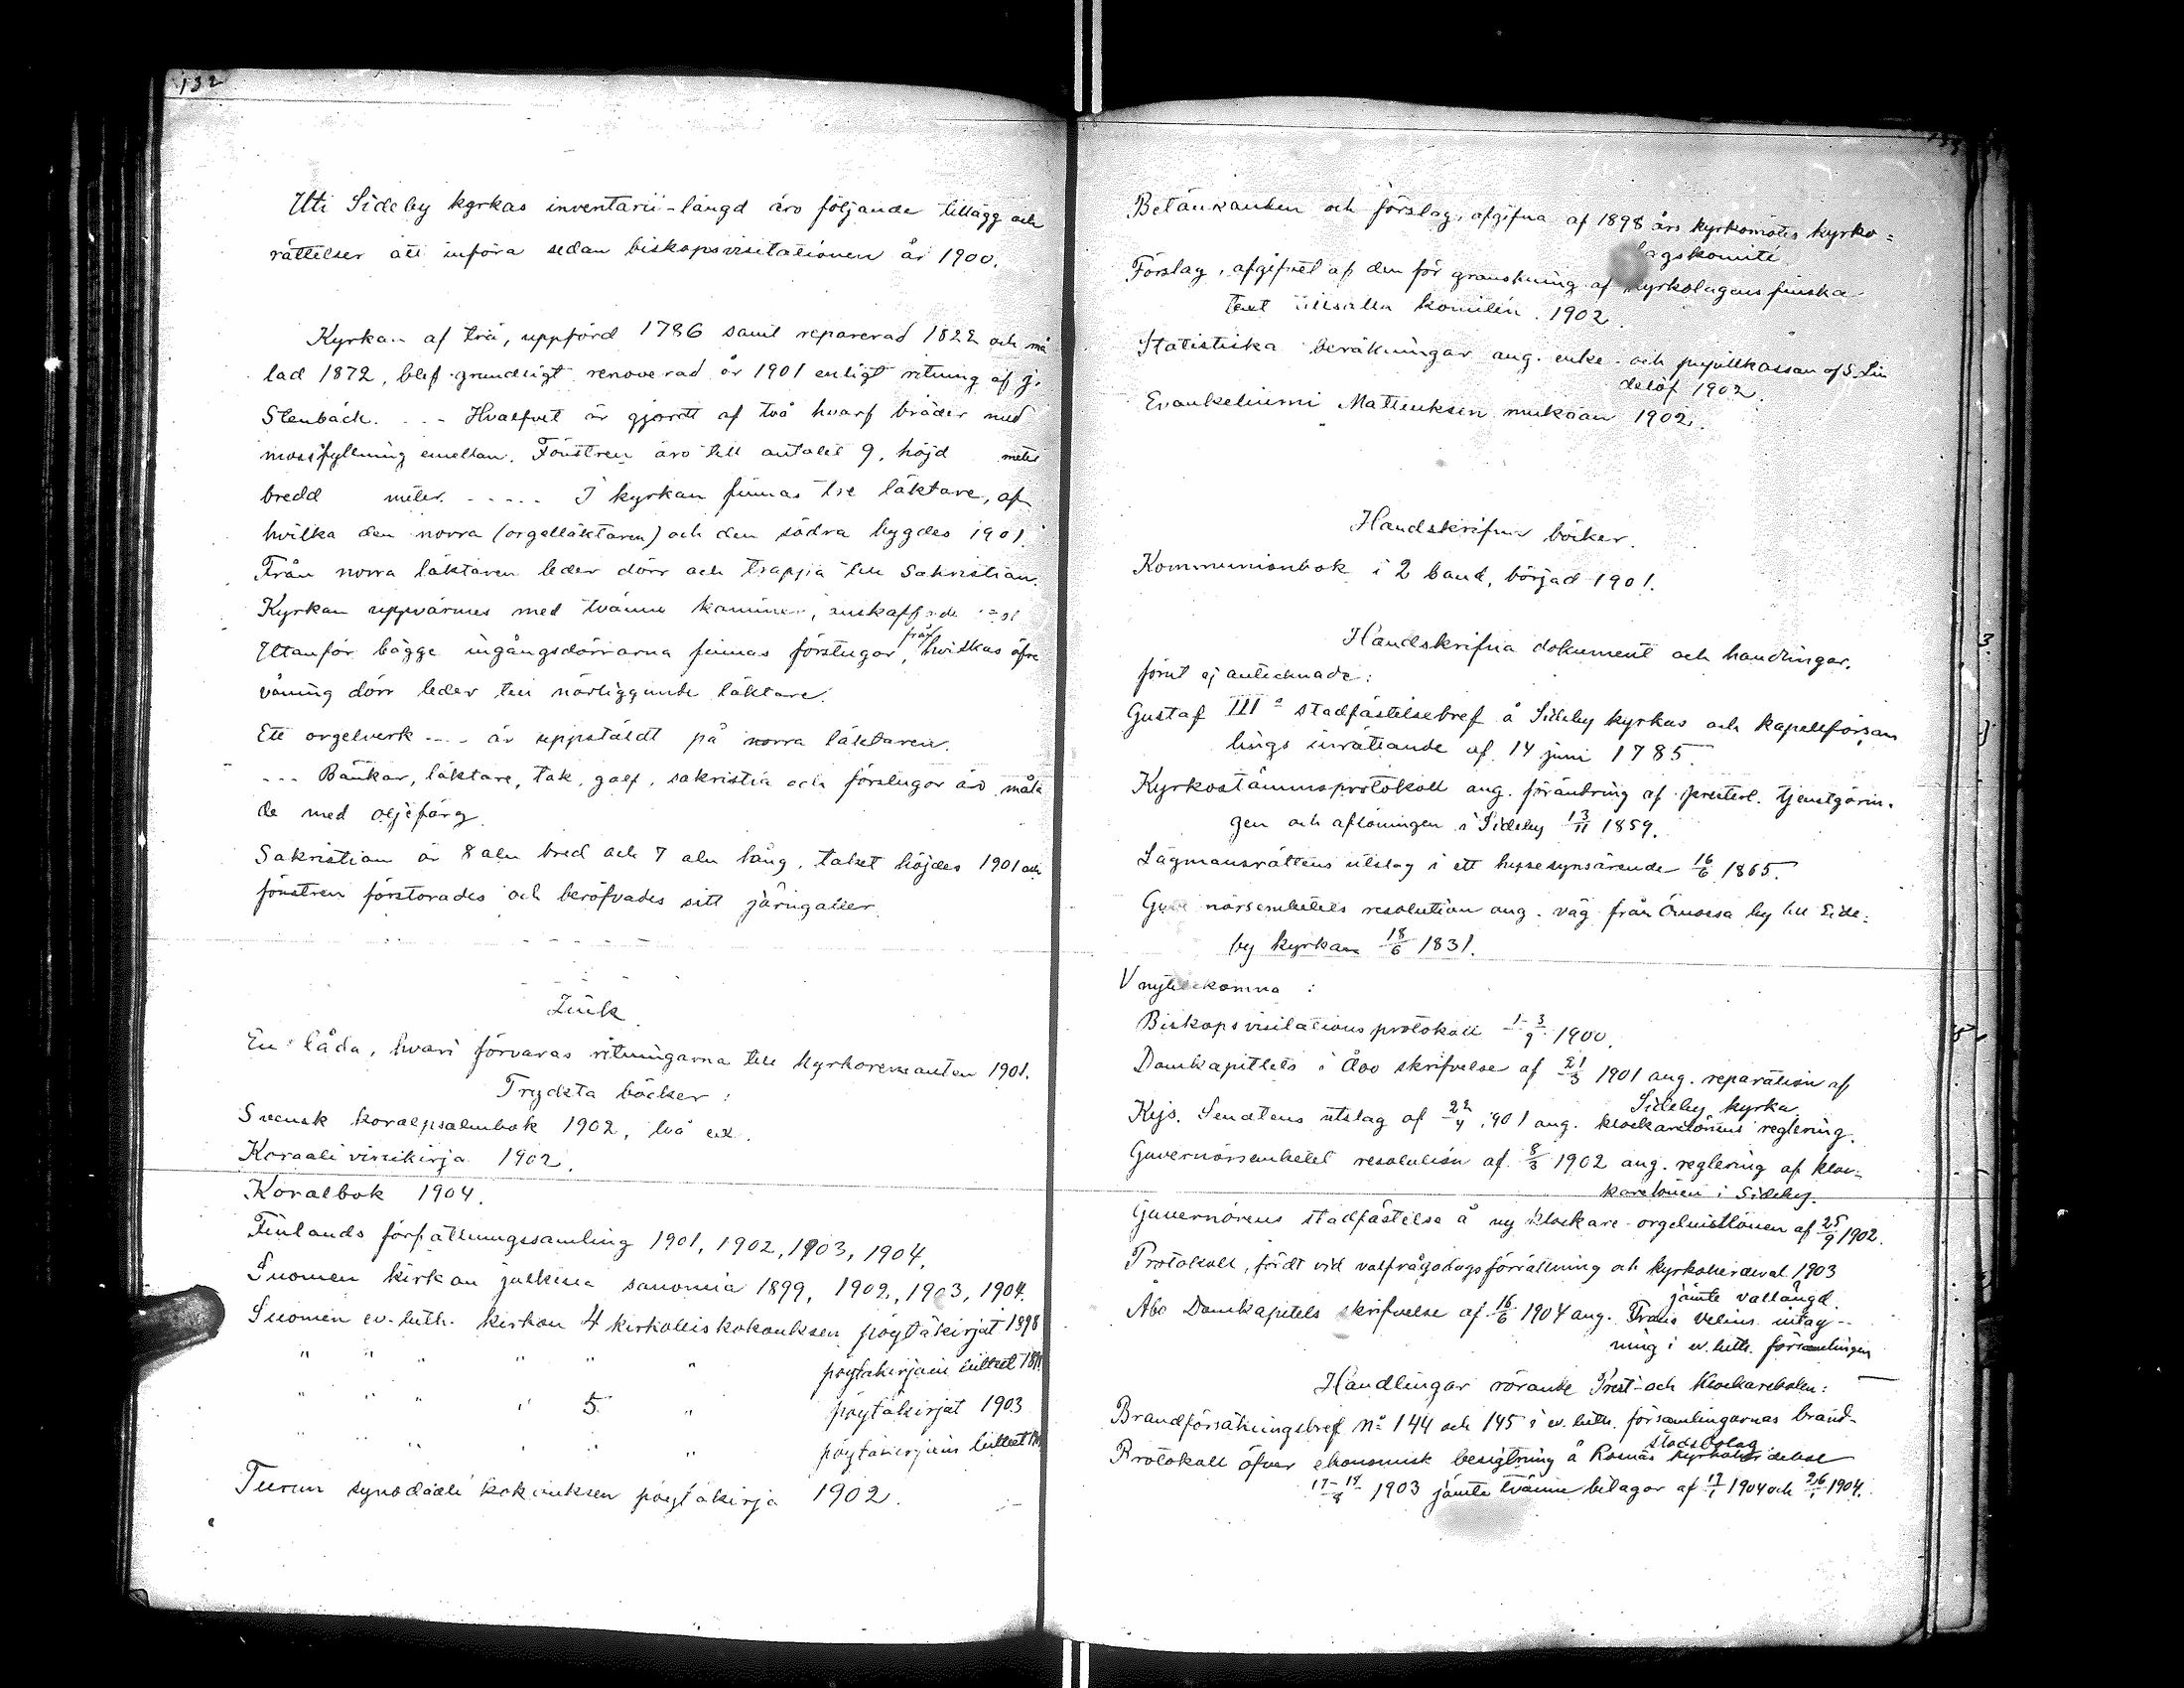 132
Uti Sideby kyrkas inventarii-längd äro följande tillägg och
rättelser att införa sedan biskopsvisitationen år 1900.
Kyrkan af trä, uppförd 1786 samt reparerad 1822 och må
lad 1872, blef grundligt renoverad år 1901 enligt ritning af J.
Stenbäck. - - - Hvalfvet är gjordt af två hvarf bräder med
mossfyllning emellan. Fönstren äro till antalet 9, höjd meter
bredd meter. - - - - - I kyrkan finnas tre läktare, af
hvilka den norra (orgelläktaren) och den södra bygdes 1901.
Från norra läktaren leder dörr och trappa till Sakristian.
Kyrkan uppvärmes med tvänne kaminer, anskaffade 1901
Utanför bägge ingångsdörrarna finnas förstugor, från hvilkas öfre
våning dörr leder till närliggande läktare.
Ett orgelverk - - - är uppstäldt på norra läktaren.
- - - Bänkar, läktare, tak, golf, sakristia och förstugor äro måla
de med oljefärg.
Sakristian är 8 aln bred och 7 aln lång, taket höjdes 1901 och
fönstren förstorades och beröfvades sitt järngaller.
Zink
En låda, hvari förvaras ritningarna till kyrkoremonten 1901.
Tryckta böcker:
Svensk koralpsalmbok 1902, två ex.
Koraalivirsikirja 1902.
Koralbok 1904.
Finlands författningssamling 1901, 1902, 1903, 1904.
Suomen kirkon julkisia sanomia 1899, 1902, 1903, 1904.
Suomen ev. luth. kirkon 4 kirkolliskokouksen pöytäkirjat 1898
" " " " " " pöytäkirjain liitteet
" " " " 5 " pöytäkirjat 1903
" " " " " pöytäkirjain liitteet
Turun synodaali kokouksen pöytäkirja 1902.
Betänkanden och förslag, afgifna af 1898 års kyrkomötes kyrko=
lagskomité.
Förslag, afgifvet af den för granskning af kyrkolagens finska
text tillsatta komitén 1902.
Statistiska beräkningar ang. enke- och pupillkassan af S. Lin
delöf 1902.
Evankeliumi Matteuksen mukaan 1902.
Handskrifna böcker.
Kommunionbok i 2 band, börjad 1901.
Handskrifna dokument och handlingar.
förut ej antecknade:
Gustaf III:s stadfästelsebref å Sideby kyrkas och kapellförsam
lings inrättande af 14 juni 1785.
Kyrkostämmoprotokoll ang. förändring af presterl. tjenstgörin-
gen och aflöningen i Sideby 13/11 1859.
Lagmansrättens utslag i ett husesynsärende 16/6 1865.
Guvernörsembetets resolution ang. väg från Ömossa by till Side=
by kyrkan 18/6 1831.
V nytillkomna :
Biskopsvisitationsprotokoll 1-3/9 1900.
Domkapitlets i Åbo skrifvelse af 21/3 1901 ang. reparation af
Sideby kyrka.
Kejs. Senatens utslag af 22/4 1901 ang. klockarelönens reglering.
Guvernörsembetet resolution af 8/3 1902 ang. reglering af kloc-
karelönen i Sideby.
Guvernörens stadfästelse å ny klockare-orgelnistlönen af 25/9 1902.
Protokoll, fördt vid valfrågodagsförrättning och kyrkoherdeval 1903
jämte vallängd.
Åbo Domkapitels skrifvelse af 16/6 1904 ang. Frans Velins intag-
ning i ev. luth. församlingen
Handlingar rörande Prest- och klockarebolen:
Brandförsäkringsbref No 144 och 145 i ev. luth. församlingarnas brand-
stodsbolag
Protokoll öfver ekonomisk besigtning å Rosnäs
17-19/8 1903 jämte tvänne bilagor af 17/1 1904 och 26/1 1904.